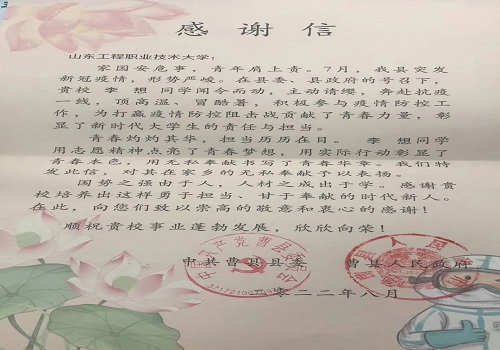 感谢信
山东工程职业技术大学：
家国安危事，青年肩上责。7月，我县突发
新冠疫情，形势严峻。在县委、县政府的号召下，
贵校 李 想 同学闻令而动，主动请缨，奔赴抗疫
一线，顶高温、冒酷暑，积极参与疫情防控工
作，为打赢疫情防控阻击战贡献了青春力量，彰
显了新时代大学生的责任与担当。
青春灼灼其华，担当历历在目。 李 想同学
用志愿精神点亮了青春梦想，用实际行动彰显了
青春本色，用无私奉献书写了青春华章。我们特
发此信，对其在家乡的无私奉献予以表扬。
国势之强由于人，人材之成出于学。感谢贵
校培养出这样勇于担当、甘于奉献的时代新人。
在此，向您们致以崇高的敬意和衷心的感谢！
顺祝贵校事业蓬勃发展，欣欣向荣！
中共曹县县委 曹县人民政府
二〇二二年八月